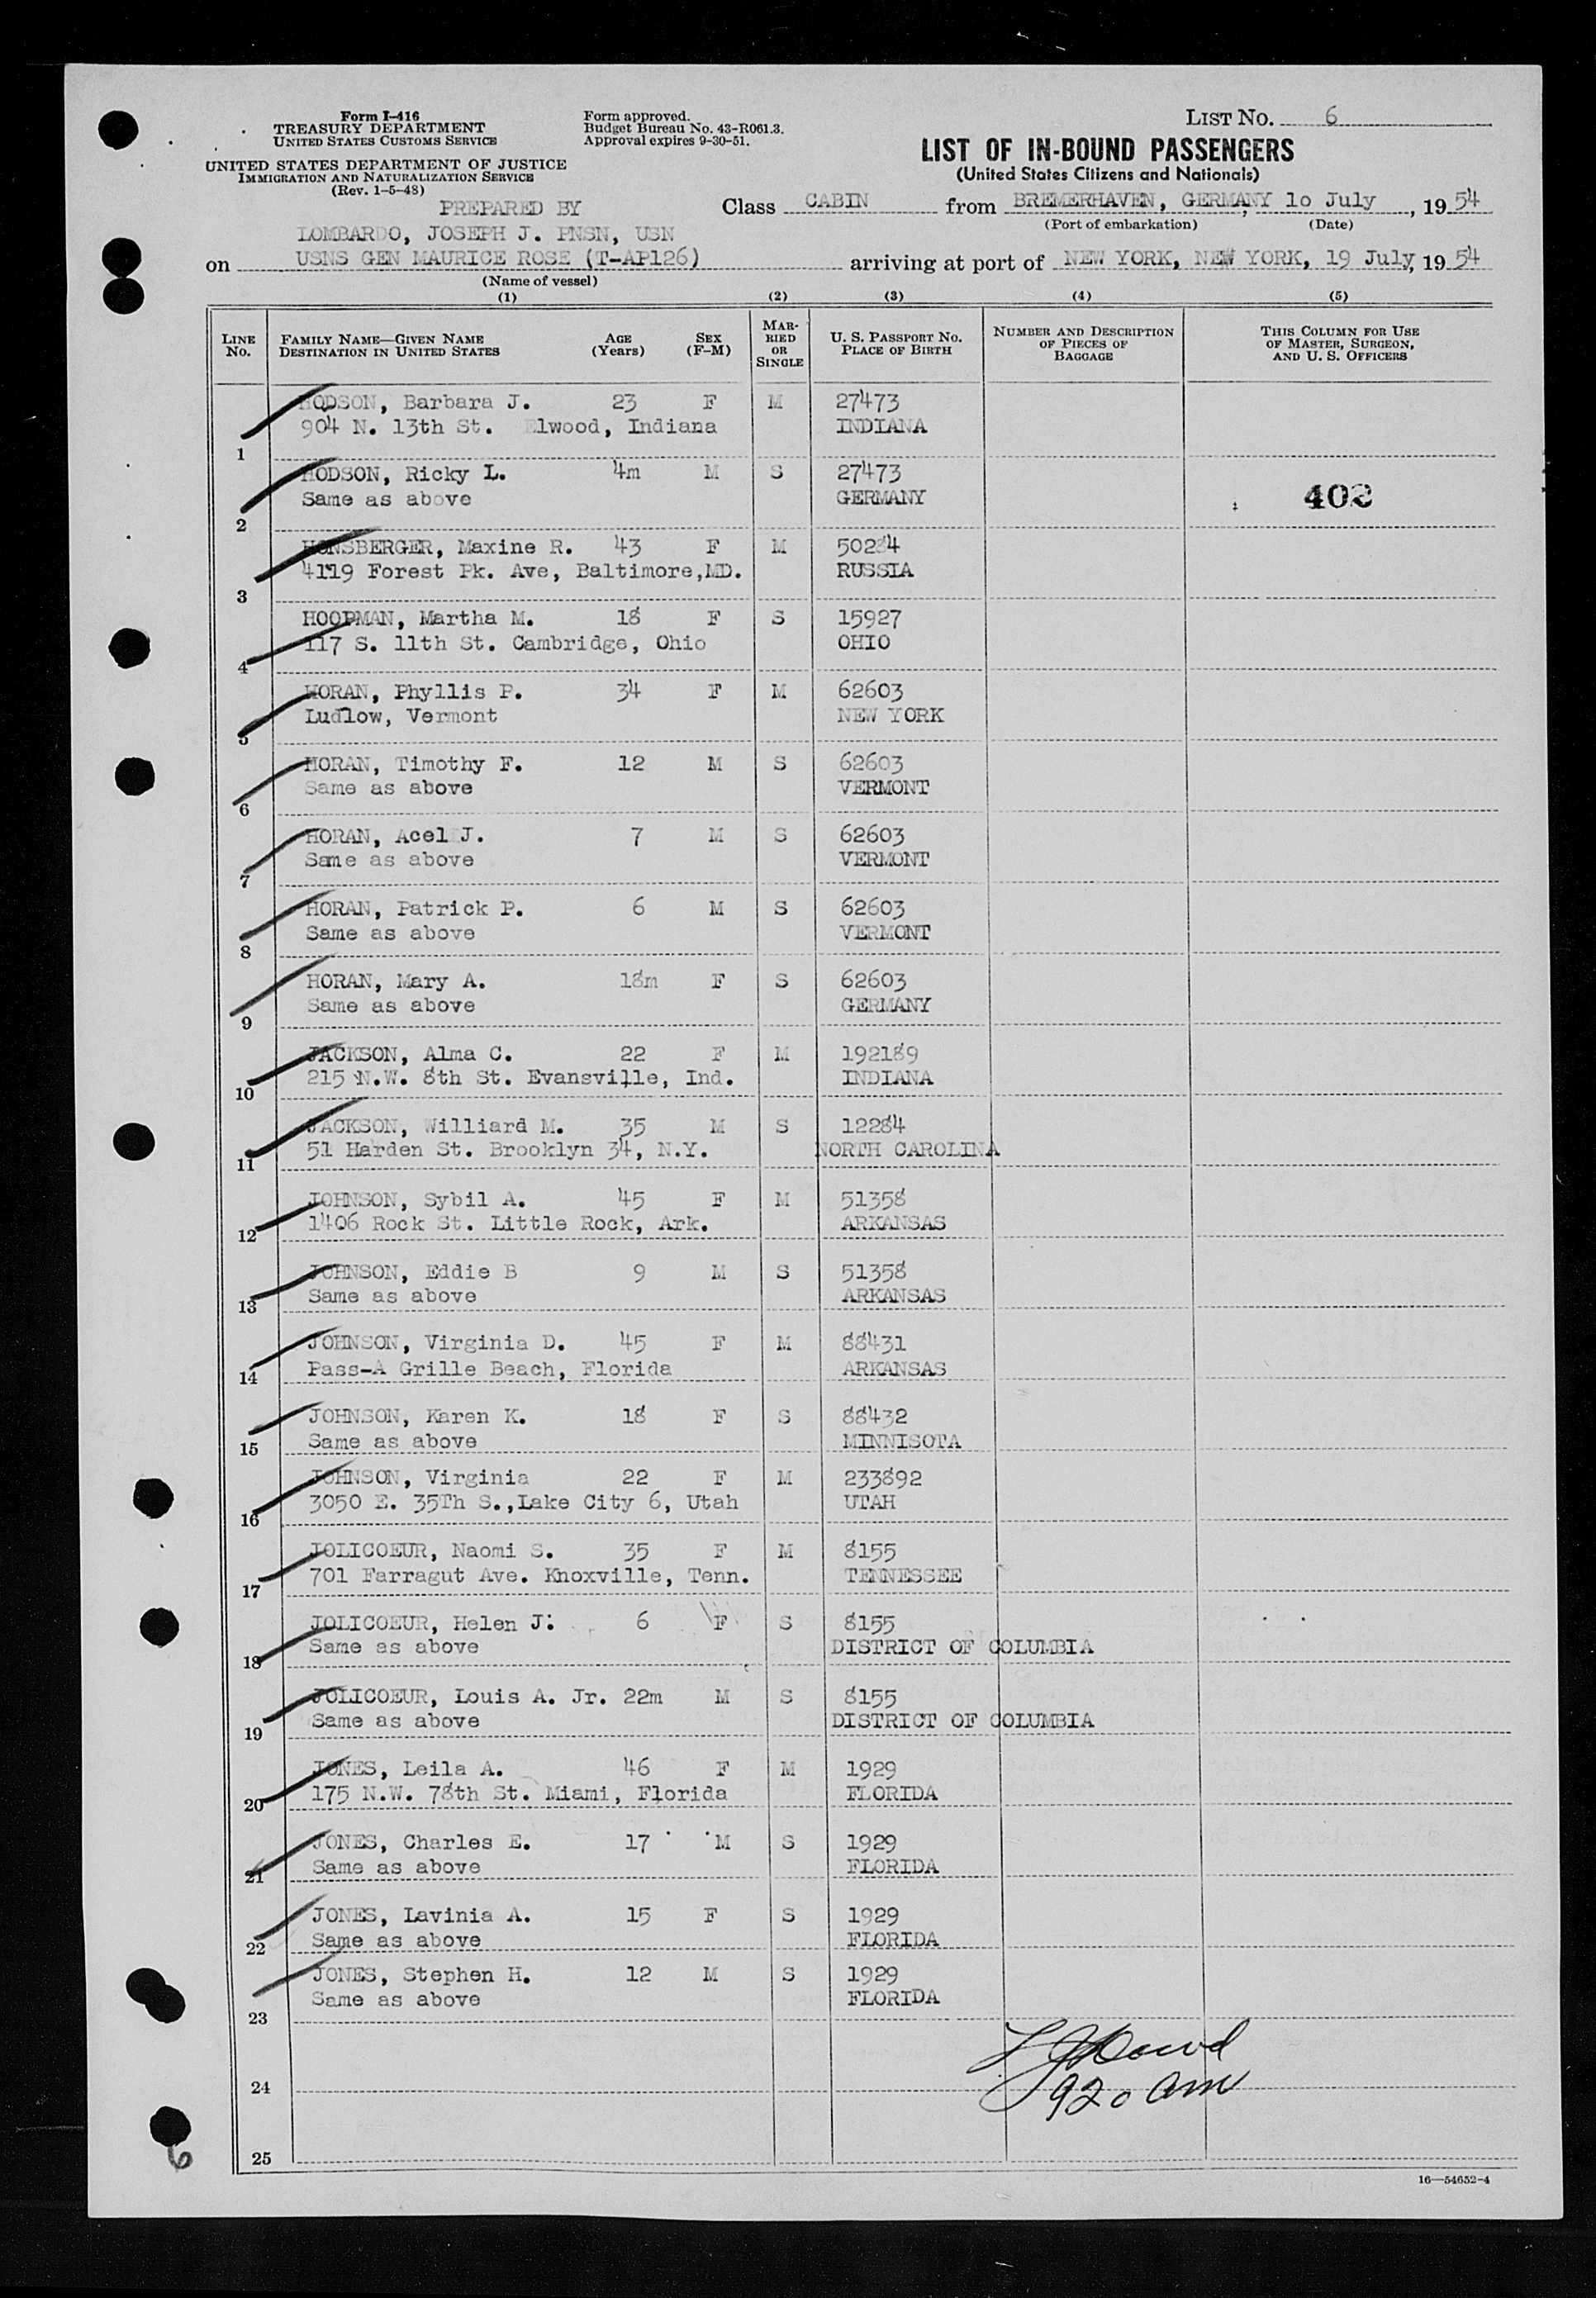 Form I-416
TREASURY DEPARTMENT
UNITED STATES CUSTOMS SERVICE
UNITED STATES DEPARTMENT OF JUSTICE
IMMIGRATION AND NATURALIZATION SERVICE
(Rev. 1-5-48)
Form approved.
Budget Bureau No. 43-R061.3.
Approval expires 9-30-51.
LIST NO. 6
LIST OF IN-BOUND PASSENGERS
(United States Citizens and Nationals)
PREPARED BY
LOMBARDO, JOSEPH J. PNSN, USN
Class CABIN from BREMERHAVEN, GERMANY, 10 July, 1954
(Port of embarkation) (Date)
on USNS GEN MAURICE ROSE (T-AP126) arriving at port of NEW YORK, NEW YORK, 19 July, 1954
(Name of vessel)
(1) (2) (3) (4) (5)
LINE No. FAMILY NAME—GIVEN NAME DESTINATION IN UNITED STATES AGE (Years) SEX (F-M) MARRIED OR SINGLE U. S. PASSPORT NO. PLACE OF BIRTH NUMBER AND DESCRIPTION OF PIECES OF BAGGAGE THIS COLUMN FOR USE OF MASTER, SURGEON, AND U. S. OFFICERS
HODSON, Barbara J. 23 F M 27473
904 N. 13th St. Elwood, Indiana INDIANA
1
HODSON, Ricky L. 4m M S 27473
Same as above GERMANY 402
2
HONSBERGER, Maxine R. 43 F M 50284
4119 Forest Pk. Ave, Baltimore,MD. RUSSIA
3
HOOPMAN, Martha M. 18 F S 15927
117 S. 11th St. Cambridge, Ohio OHIO
4
HORAN, Phyllis P. 34 F M 62603
Ludlow, Vermont NEW YORK
5
HORAN, Timothy F. 12 M S 62603
Same as above VERMONT
6
HORAN, Acel J. 7 M S 62603
Same as above VERMONT
7
HORAN, Patrick P. 6 M S 62603
Same as above VERMONT
8
HORAN, Mary A. 18m F S 62603
Same as above GERMANY
9
JACKSON, Alma C. 22 F M 192189
215 N.W. 8th St. Evansville, Ind. INDIANA
10
JACKSON, Williard M. 35 M S 12284
51 Harden St. Brooklyn 34, N.Y. NORTH CAROLINA
11
JOHNSON, Sybil A. 45 F M 51358
1406 Rock St. Little Rock, Ark. ARKANSAS
12
JOHNSON, Eddie B 9 M S 51358
Same as above ARKANSAS
13
JOHNSON, Virginia D. 45 F M 88431
Pass-A Grille Beach, Florida ARKANSAS
14
JOHNSON, Karen K. 18 F S 88432
Same as above MINNISOTA
15
JOHNSON, Virginia 22 F M 233892
3050 E. 35Th S.,Lake City 6, Utah UTAH
16
JOLICOEUR, Naomi S. 35 F M 8155
701 Farragut Ave. Knoxville, Tenn. TENNESSEE
17
JOLICOEUR, Helen J. 6 F S 8155
Same as above DISTRICT OF COLUMBIA
18
JOLICOEUR, Louis A. Jr. 22m M S 8155
Same as above DISTRICT OF COLUMBIA
19
JONES, Leila A. 46 F M 1929
175 N.W. 78th St. Miami, Florida FLORIDA
20
JONES, Charles E. 17 M S 1929
Same as above FLORIDA
21
JONES, Lavinia A. 15 F S 1929
Same as above FLORIDA
22
JONES, Stephen H. 12 M S 1929
Same as above FLORIDA
23
24
920 am
25
6
16—54652-4